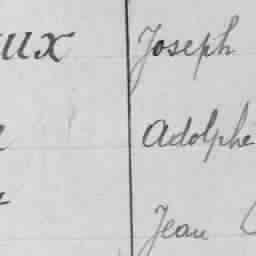 ux Joseph
Adolphe
Jean